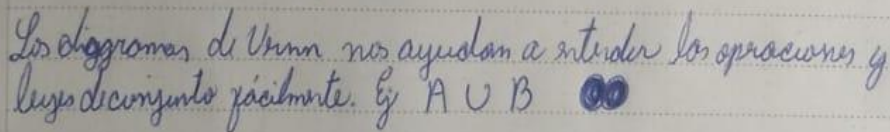 Los diagramas de Venn nos ayudan a entender las operaciones y
leyes de conjunto fácilmente. Ej A U B